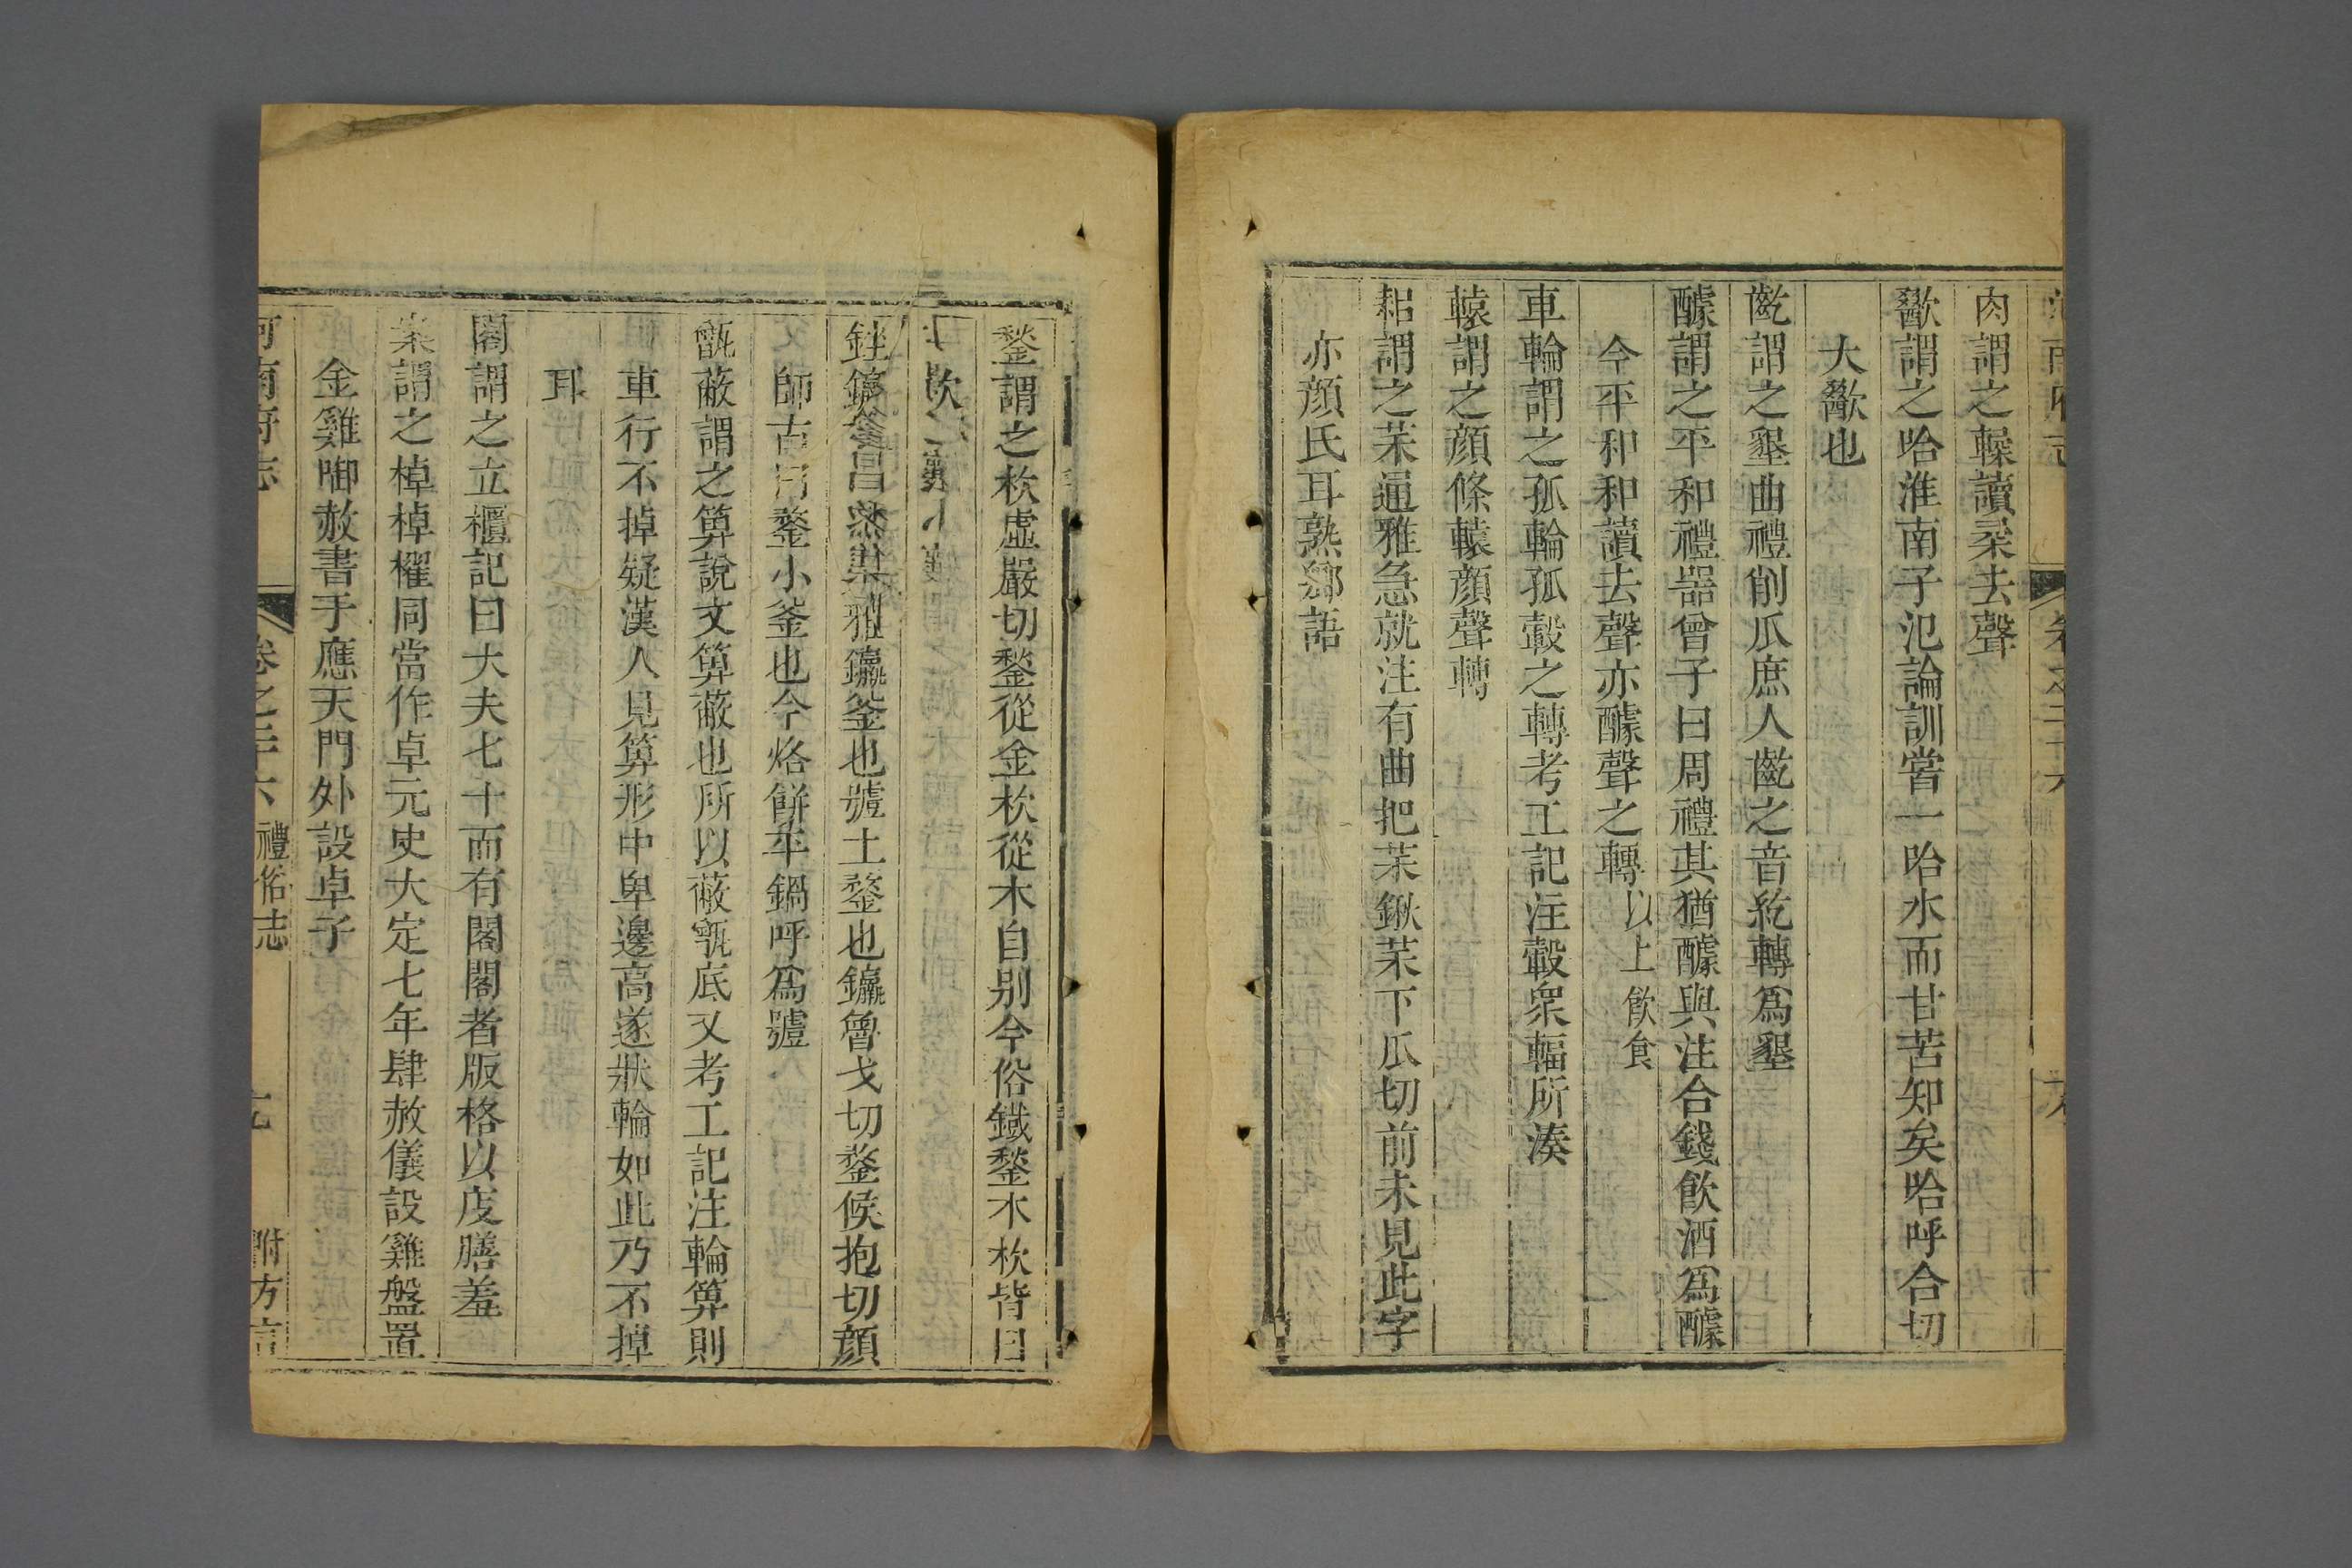 肉謂之䐁讀桑去聲
歠謂之哈淮南子氾論訓嘗一哈水而甘苦知矣哈呼合切
大歠也
齕謂之墾曲禮削瓜庶人齕之音紇轉爲墾
醵謂之平和禮器曾子曰周禮其猶醵與注合錢飲酒爲醵
今平和和讀去聲亦醵聲之轉以上飲食
車輪謂之孤輪孤轂之轉考工記注轂衆輻所湊
轅謂之顔條轅顔聲轉
耜謂之茱通雅急就注有曲把茱鍬茱下瓜切前未見此字
亦顔氏耳熟鄉語
鍫謂之杴虛嚴切鍫從金杴從木自别今俗鐵鍫木杴皆曰
杴
也號土鏊也鑼魯戈切鏊候抱切顔
師古曰鏊小釜也今烙餅平鍋呼爲號
甑蔽謂之箅說文箅蔽也所以蔽甑底又考工記注輪箅則
車行不掉疑漢人見箅形中卑邊高遂狀輪如此乃不掉
耳
閣謂之立櫃記曰大夫七十而有閣閣者版格以庋膳羞
案謂之棹棹櫂同當作卓元史大定七年肆赦儀設雞盤置
金雞啣赦書于應天門外設卓子
河南府志 卷之二十六 禮俗志 附方言